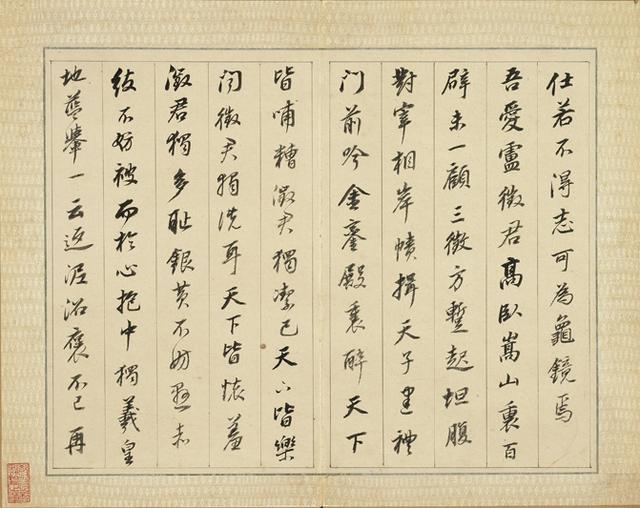 仕若不得志可為龜鏡焉
吾愛盧徵君高臥嵩山裏百
辟未一顧三徵方蹔起坦腹
對宰相岸幘揖天子建禮
門前吟金鑾殿裏醉天下
皆哺糟徵君獨潔己天下皆樂
聞徵君獨洗耳天下皆懷羞
徵君獨多恥銀黃不妨懸赤
紱不妨被而於心抱中獨羲皇
地藍轝一云返泥詔褒不已再